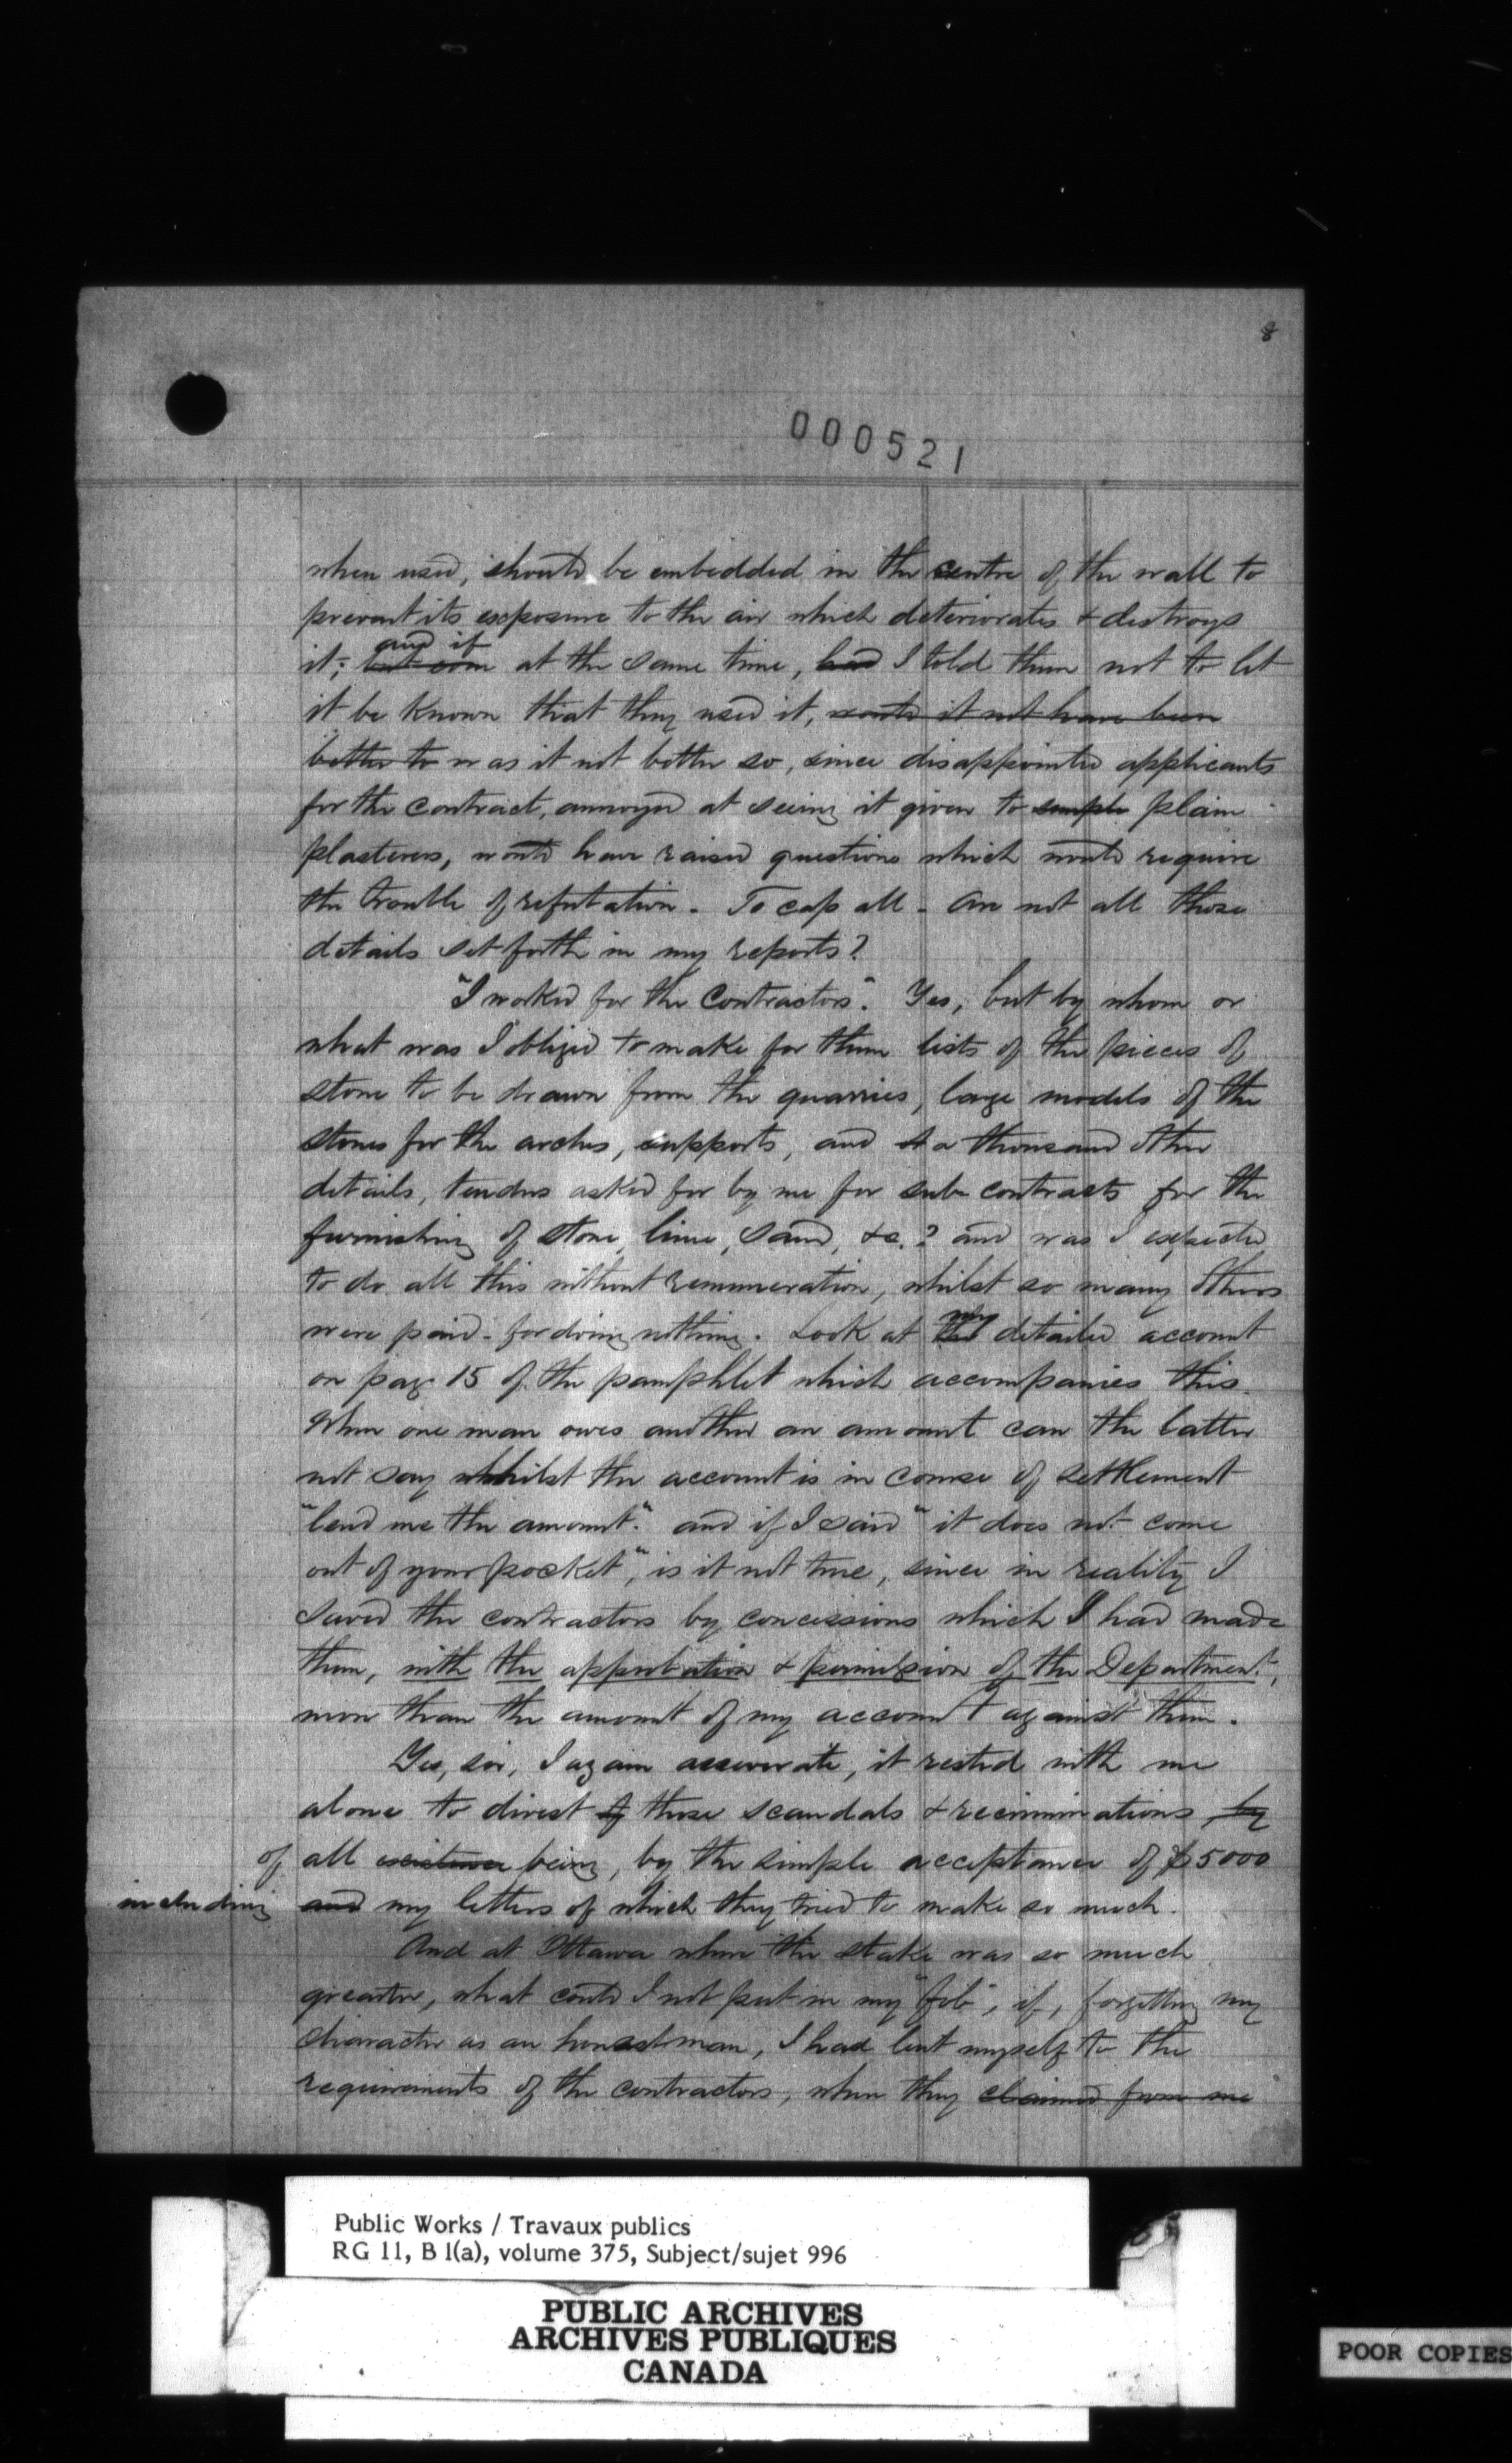 8
000521
when used, should be embedded in the centre of the wall to
prevent its exposure to the air which deteriorates & destroys
and if
it; but at the same time, had I told them not to let
it be known that they used it, would it not have been
better to was it not better so, since disappointed applicants
for the contract, annoyed at seeing it given to simple plain
plasterers, would have raised questions which would require
the trouble of refutation. To cap all - are not all those
details set forth in my reports?
"I worked for the contractors". Yes, but by whom or
what was I obliged to make for them lists of the pieces of
stone to be drawn from the quarries, large models of the
stones for the arches, supports, and a thousand other
details, tenders asked for by me for sub contracts for the
furnishing of stone, lime, sand, &c.? and was I expected
to do all this without remuneration, whilst so many others
my
were paid - for doing nothing. Look at the detailed account
on page 15 of the pamphlet which accompanies this.
When one man owes another an amount can the latter
not say whilst the account is in course of settlement
"lend me the amount". and if I said "it does not come
out of your pocket", is it not true, since in reality I
saved the contractors by concessions which I had made
them, with the approbation & permission of the Department,
more than the amount of my account against them.
Yes, sir, I again asseverate, it rested with me
alone to divest of those scandals & recriminations by
of all existence being, by the simple acceptance of $5000
including and my letters of which they tried to make so much.
And at Ottawa where the stake was so much
greater, what could I not put in my "fob", if, forgetting my
character as an honest man, I had lent myself to the
requirements of the contractors, when they claimed from me
Public Works / Travaux publics
RG 11, B 1(a), volume 375, Subject/sujet 996
PUBLIC ARCHIVES
ARCHIVES PUBLIQUES
CANADA
POOR COPIES